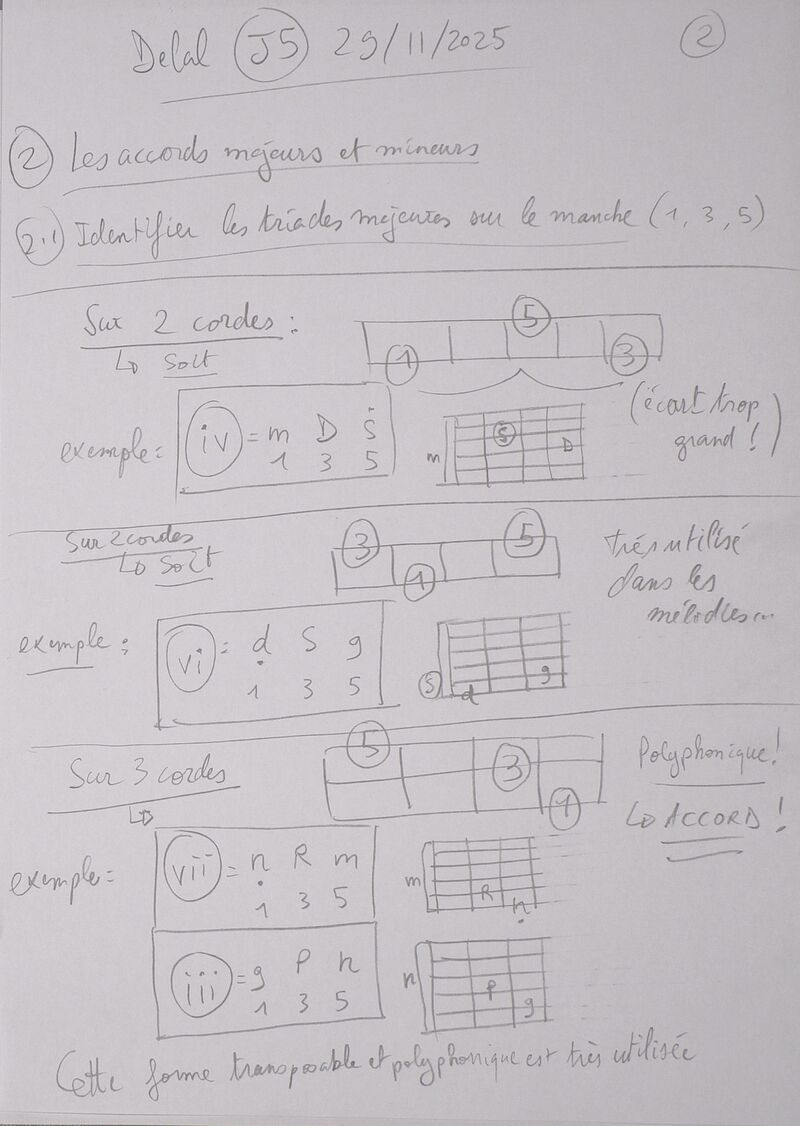 Delal J5 29/11/2025 2
2 Les accords majeurs et mineurs
2.1 Identifier les triades majeures sur le manche (1, 3, 5)
Sur 2 cordes :
↳ soit
5
1 3
(écart trop grand !)
exemple = iv = m D Ṡ
1 3 5
m S D
Sur 2 cordes
↳ soit
3 5
1
très utilisé
dans les
mélodies...
exemple : vi = ḍ S g
1 3 5
S d g
Sur 3 cordes
↳
5
3
1
Polyphonique !
↳ ACCORD !
exemple = vii = ṇ R m
1 3 5
m R ṇ
iii = g P n
1 3 5
n P g
Cette forme transposable et polyphonique est très utilisée